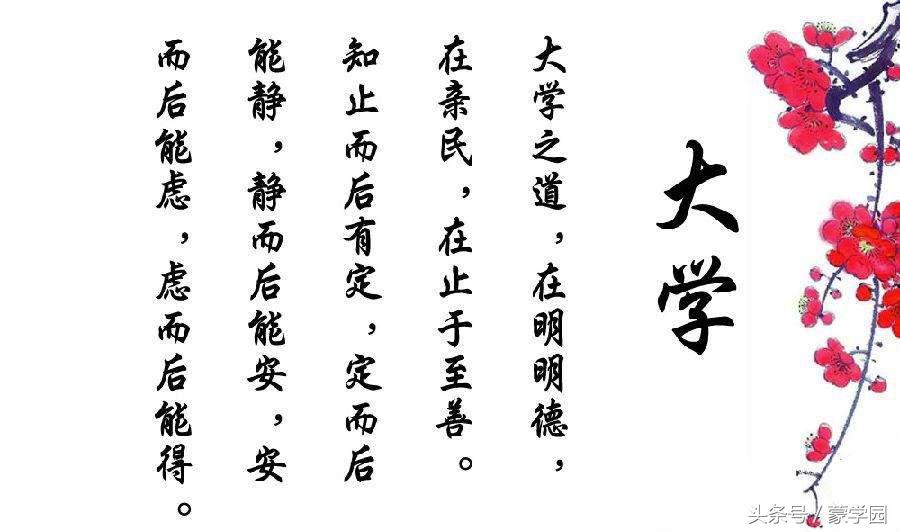 大学
大学之道，在明明德，
在亲民，在止于至善。
知止而后有定，定而后
能静，静而后能安，安
而后能虑，虑而后能得。
头条号／蒙学园